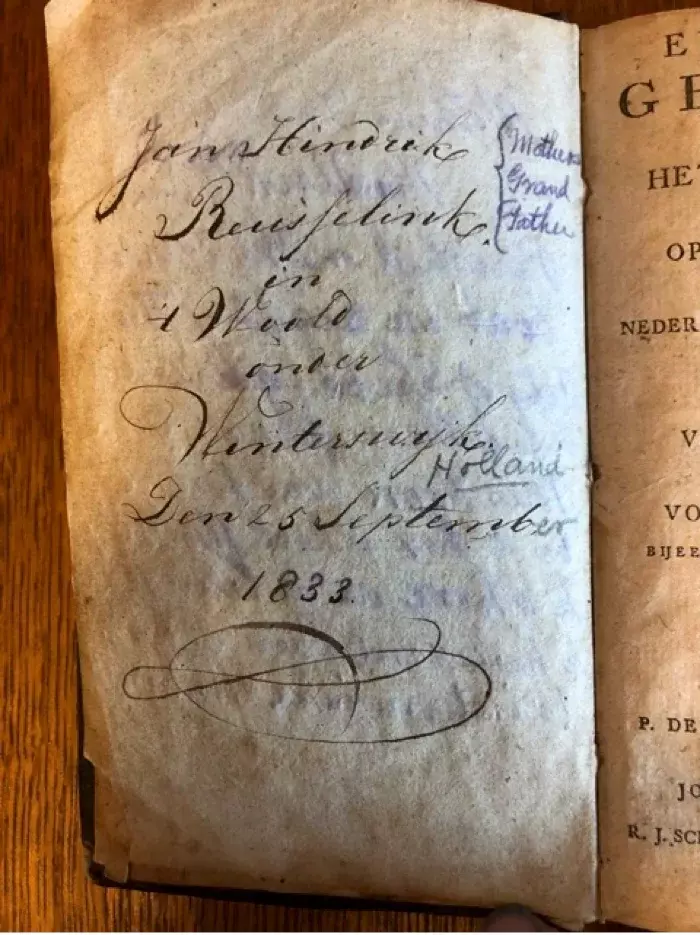 Jan Hindrik
Reusselink.
in
't Woold
onder
Winterswyk.
Holland
Den 25 September
1833.
Mothers
Grand
Father
E
GE
HE
OP
NEDER
V
VO
BIJEE
P. DE
JO
R. J. SC